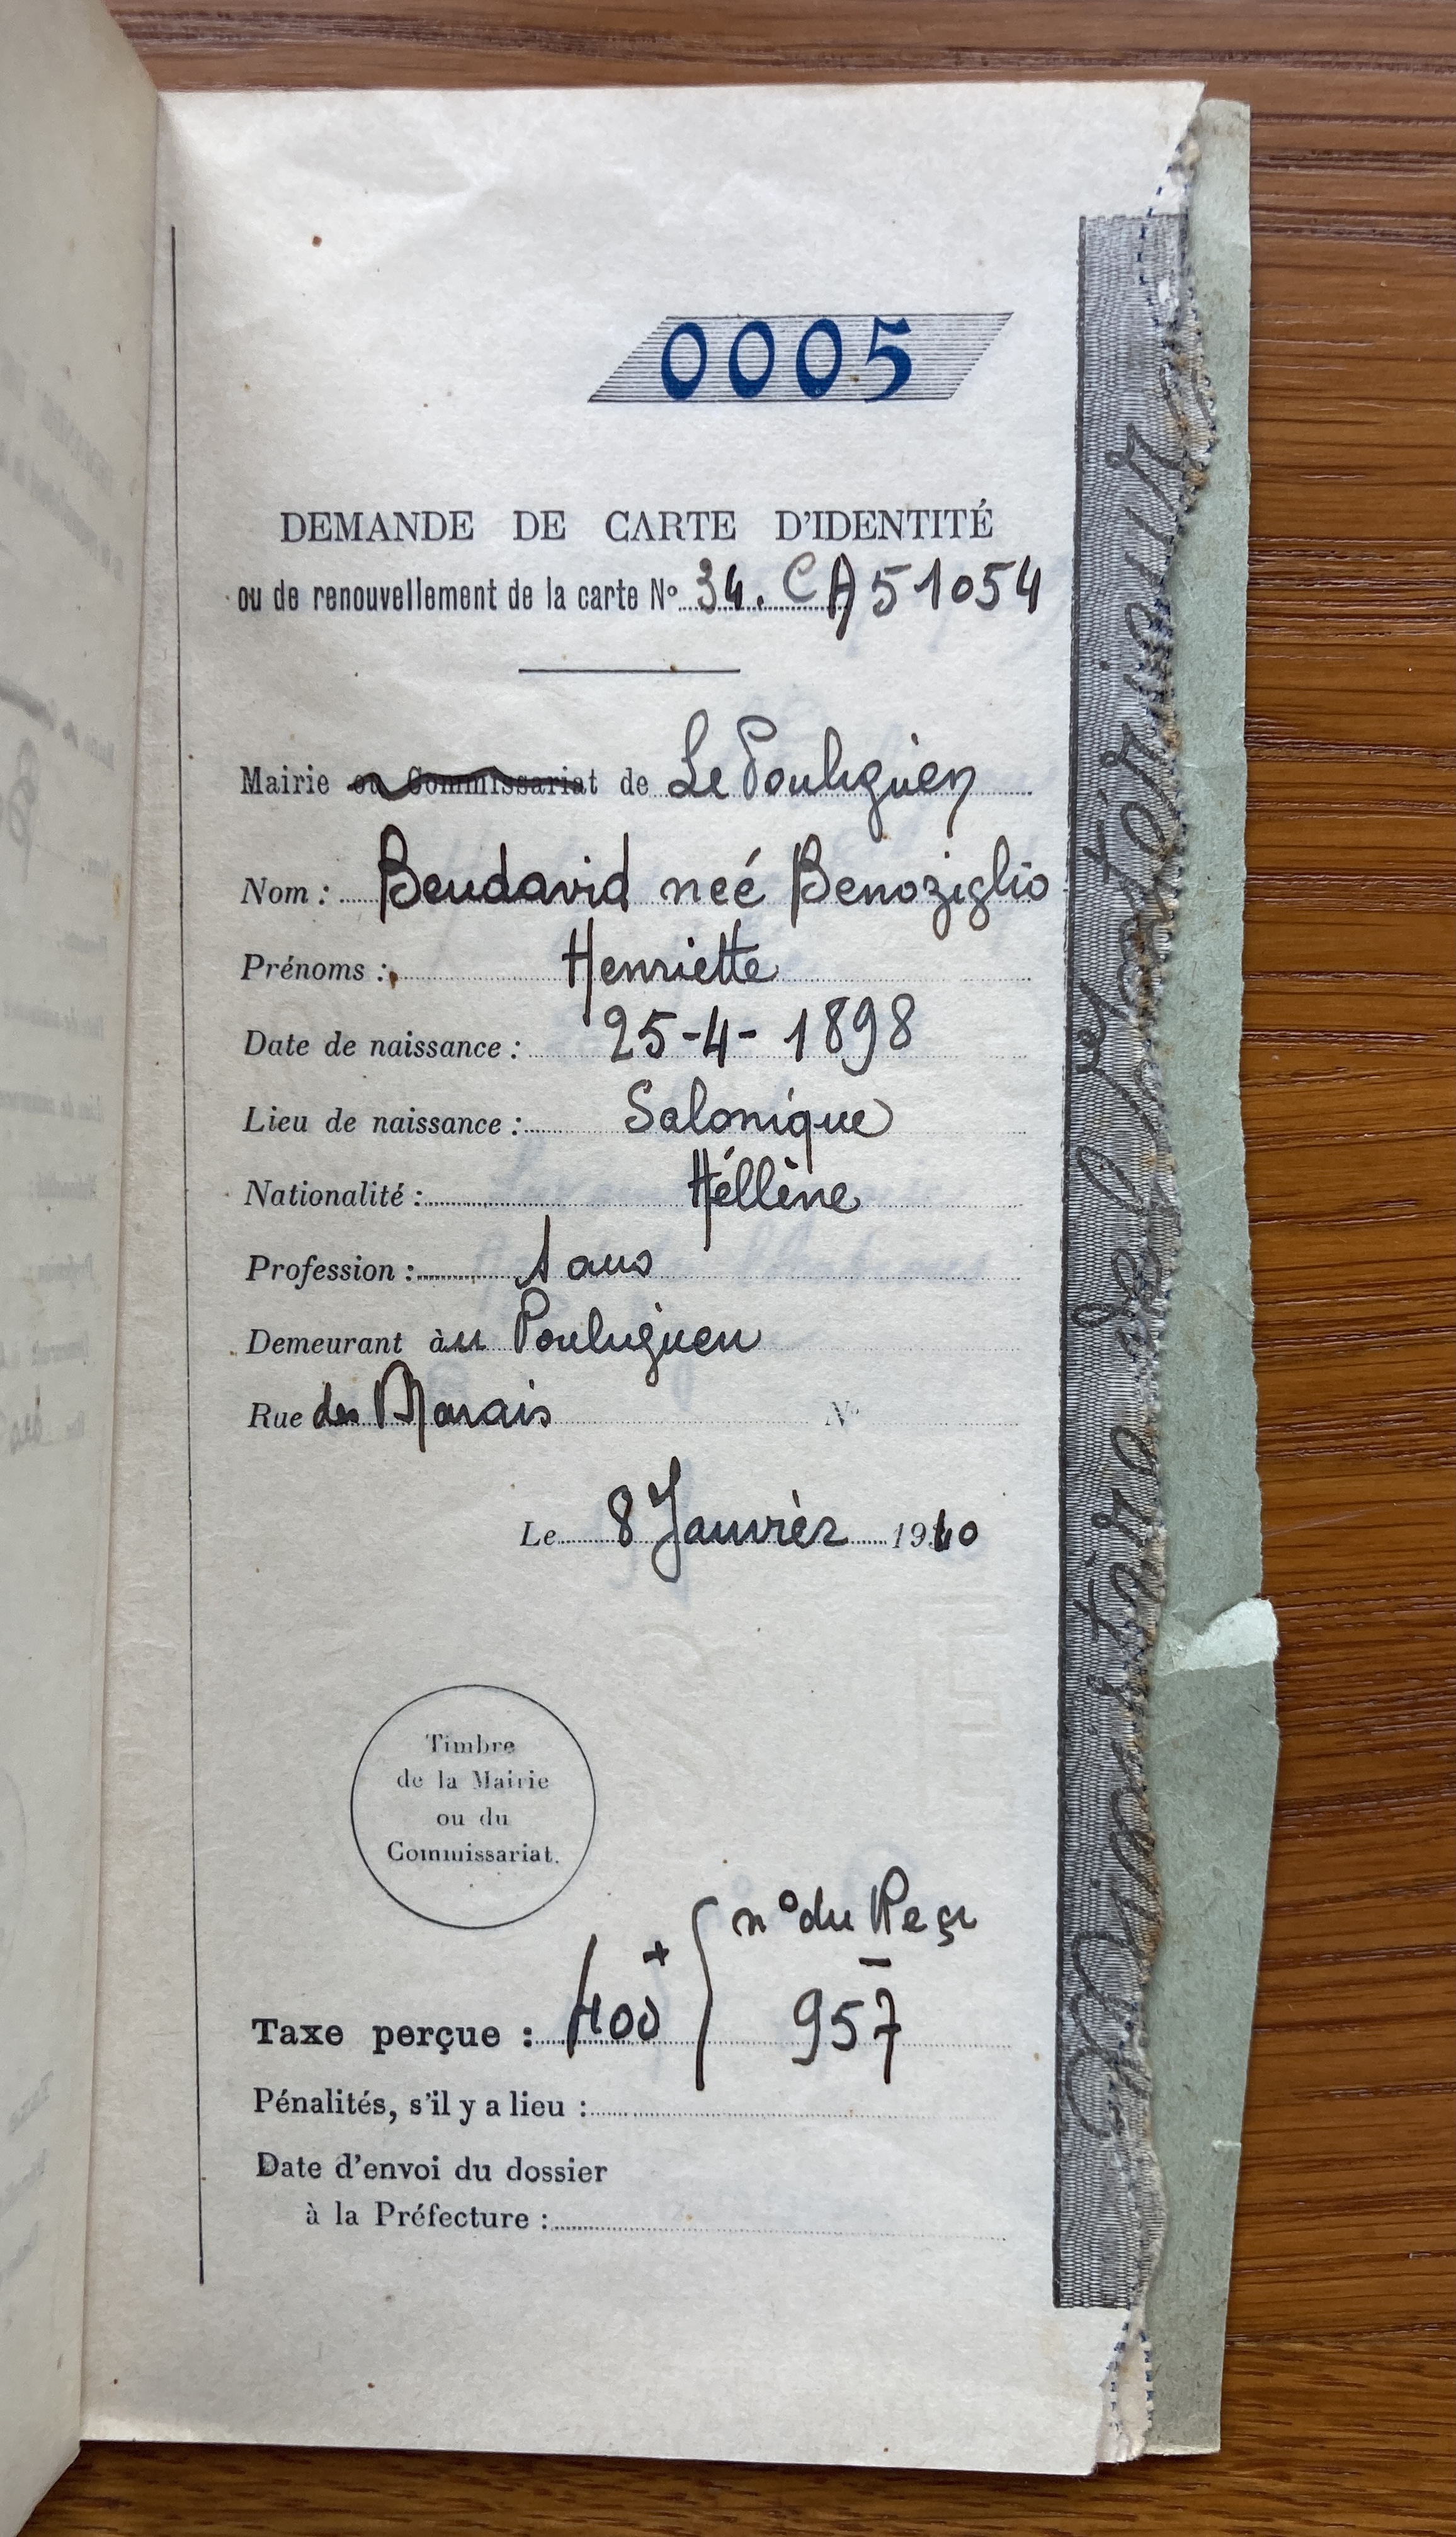 0005
DEMANDE DE CARTE D'IDENTITÉ
ou de renouvellement de la carte N° 34. CA 51054
Mairie ou Commissariat de Le Pouliguen
Nom : Bendavid neé Benoziglio
Prénoms : Henriette
Date de naissance : 25-4-1898
Lieu de naissance : Salonique
Nationalité : Héllène
Profession : Sans
Demeurant àu Pouliguen
Rue des Marais N°
Le 8 Janvièr 1940
Timbre
de la Mairie
ou du
Commissariat.
n° du Reçu
Taxe perçue : 400 + 957
Pénalités, s'il y a lieu :
Date d'envoi du dossier
à la Préfecture :